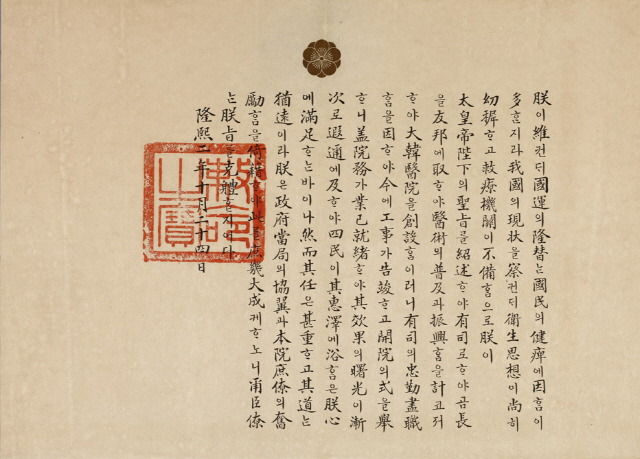 朕이維컨ᄃᆡ國運의隆替ᄂᆞᆫ國民의健瘁에因ᄒᆞᆷ이
多ᄒᆞᆫ지라我國의現狀을察컨ᄃᆡ衛生思想이尙히
幼穉ᄒᆞ고救療機關이不備ᄒᆞᆷ으로朕이
太皇帝陛下의聖旨를紹述ᄒᆞ야有司로ᄒᆞ야곰長
을友邦에取ᄒᆞ야醫術의普及과振興ᄒᆞᆷ을計코져
ᄒᆞ야大韓醫院을創設ᄒᆞᆷ이러니有司의忠勤盡職
ᄒᆞᆷ을因ᄒᆞ야今에工事가告竣ᄒᆞ고開院의式을擧
ᄒᆞ니盖院務가業已就緖ᄒᆞ야其效果의曙光이漸
次로遐邇에及ᄒᆞ야四民이其惠澤에浴ᄒᆞᆷ은朕心
에滿足ᄒᆞᄂᆞᆫ바이나然而其任은甚重ᄒᆞ고其道ᄂᆞᆫ
猶遠이라朕은政府當局의協翼과本院庶僚의奮
勵ᄒᆞᆷ을倚賴ᄒᆞ야此庶幾大成케ᄒᆞ노니爾臣僚
ᄂᆞᆫ朕旨를克體ᄒᆞᆯ지어다
隆熙二年十月二十四日
勅命之寶